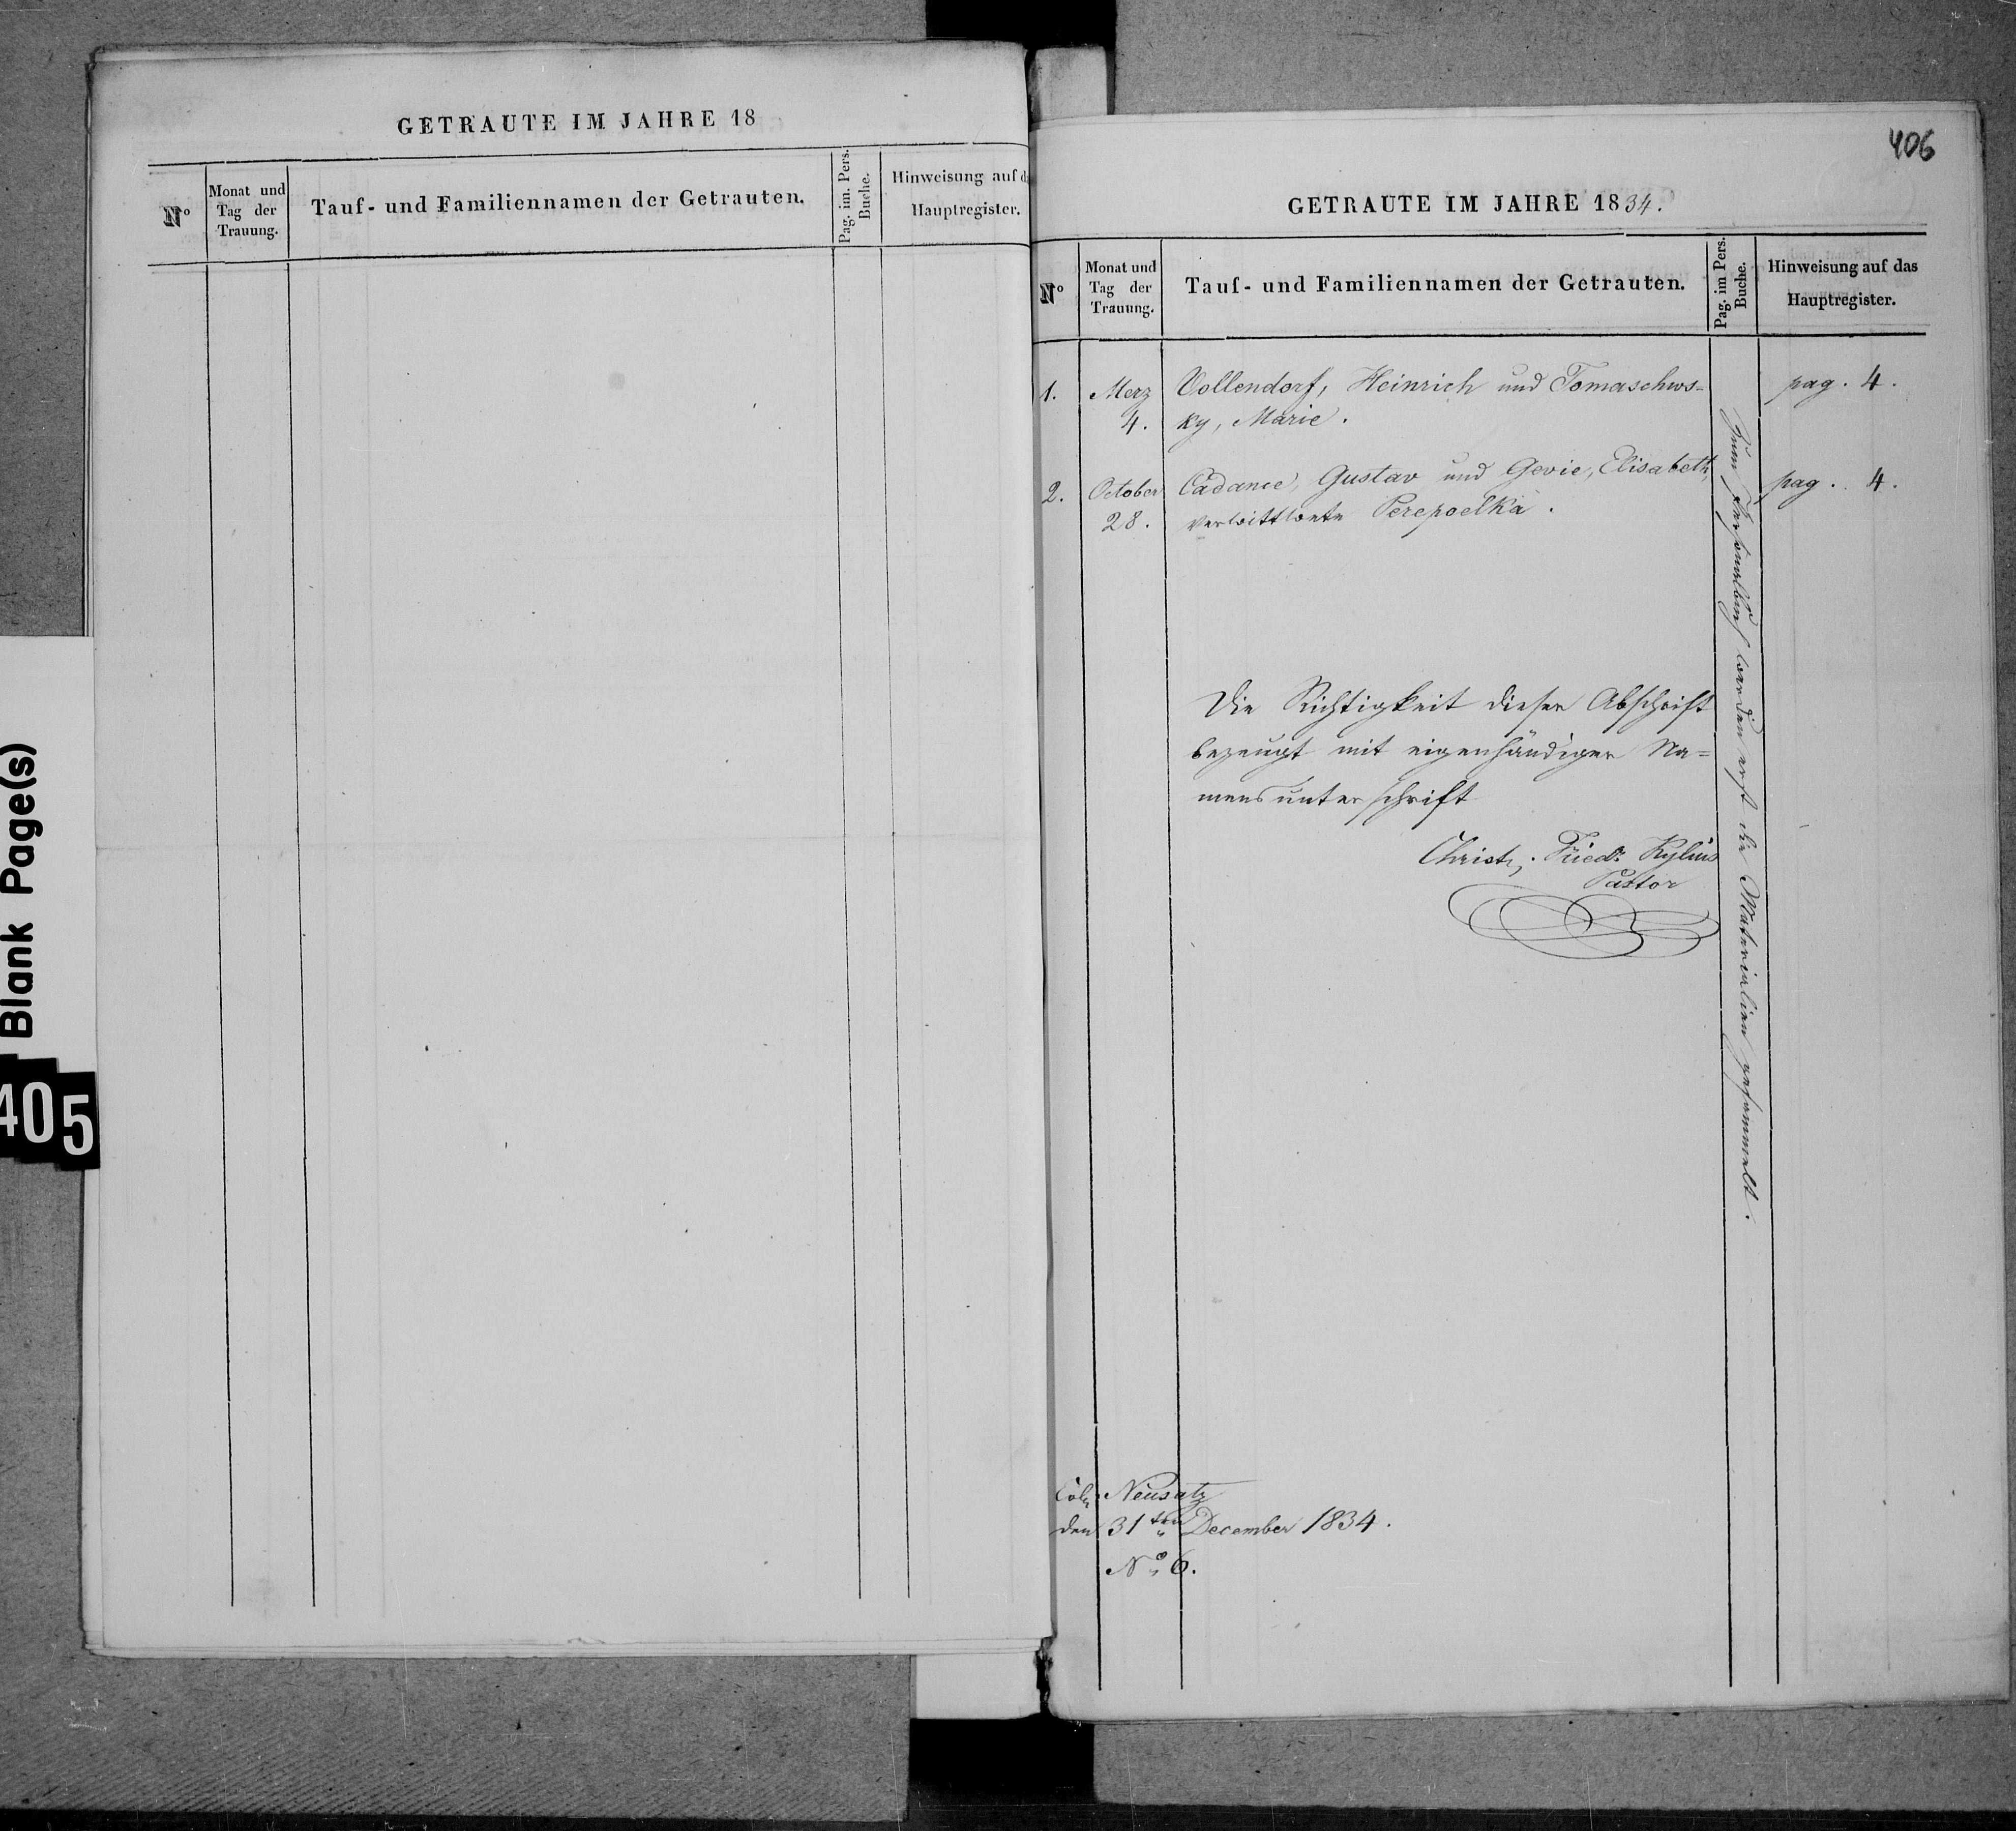 GETRAUTE IM JAHRE 18
N°
Monat und
Tag der
Trauung.
Tauf- und Familiennamen der Getrauten.
Pag. im. Pers.
Buche.
Hinweisung auf d
Hauptregister.
Blank Page(s)
405
406
GETRAUTE IM JAHRE 1834.
N°
Monat und
Tag der
Trauung.
Tauf- und Familiennamen der Getrauten.
Pag. im Pers.
Buche.
Hinweisung auf das
Hauptregister.
1. Merz Vollendorf, Heinrich und Tomaschws- pag. 4.
4. ky, Marie.
2. October Cadance, Gustav und Gevie, Elisabeth, pag. 4.
28. verwittwete Perepoelka.
Zum Personalbuch werden erst die Materialien gesammelt.
Die Richtigkeit dieser Abschrift
bezeugt mit eigenhändiger Na=
mensunterschrift
Christ. Fried. Kylius
Pastor
Col. Neusatz
den 31ten December 1834.
N° 6.